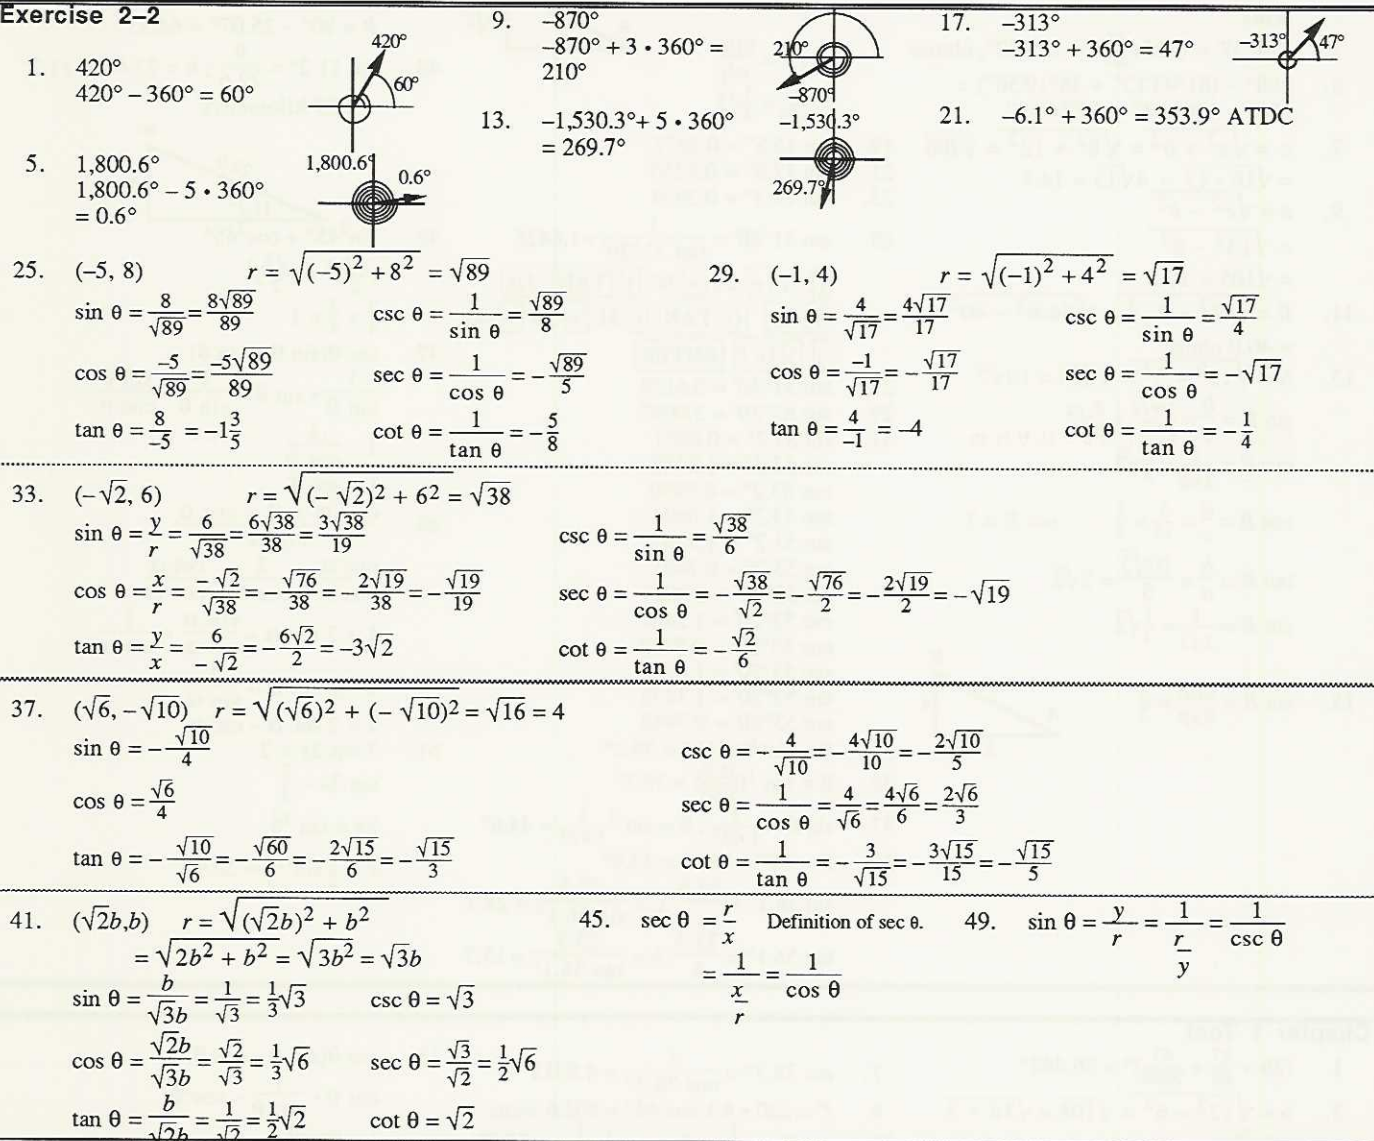 Exercise 2–2
1. 420°
420° – 360° = 60°
420°
60°
5. 1,800.6°
1,800.6° – 5 • 360°
= 0.6°
1,800.6°
0.6°
9. –870°
–870° + 3 • 360° =
210°
210°
–870°
13. –1,530.3°+ 5 • 360°
= 269.7°
–1,530.3°
269.7°
17. –313°
–313° + 360° = 47°
–313°
47°
21. –6.1° + 360° = 353.9° ATDC
25. (–5, 8) r = √((–5)² + 8²) = √89
sin θ = 8/√89 = 8√89/89 csc θ = 1/sin θ = √89/8
cos θ = –5/√89 = –5√89/89 sec θ = 1/cos θ = –√89/5
tan θ = 8/–5 = –1 3/5 cot θ = 1/tan θ = –5/8
29. (–1, 4) r = √((–1)² + 4²) = √17
sin θ = 4/√17 = 4√17/17 csc θ = 1/sin θ = √17/4
cos θ = –1/√17 = –√17/17 sec θ = 1/cos θ = –√17
tan θ = 4/–1 = –4 cot θ = 1/tan θ = –1/4
33. (–√2, 6) r = √((–√2)² + 6²) = √38
sin θ = y/r = 6/√38 = 6√38/38 = 3√38/19 csc θ = 1/sin θ = √38/6
cos θ = x/r = –√2/√38 = –√76/38 = –2√19/38 = –√19/19 sec θ = 1/cos θ = –√38/√2 = –√76/2 = –2√19/2 = –√19
tan θ = y/x = 6/–√2 = –6√2/2 = –3√2 cot θ = 1/tan θ = –√2/6
37. (√6, –√10) r = √((√6)² + (–√10)²) = √16 = 4
sin θ = –√10/4 csc θ = –4/√10 = –4√10/10 = –2√10/5
cos θ = √6/4 sec θ = 1/cos θ = 4/√6 = 4√6/6 = 2√6/3
tan θ = –√10/√6 = –√60/6 = –2√15/6 = –√15/3 cot θ = 1/tan θ = –3/√15 = –3√15/15 = –√15/5
41. (√2b,b) r = √((√2b)² + b²)
= √(2b² + b²) = √(3b²) = √3b
sin θ = b/√3b = 1/√3 = 1/3√3 csc θ = √3
cos θ = √2b/√3b = √2/√3 = 1/3√6 sec θ = √3/√2 = 1/2√6
tan θ = b/√2b = 1/√2 = 1/2√2 cot θ = √2
45. sec θ = r/x Definition of sec θ.
= 1/(x/r) = 1/cos θ
49. sin θ = y/r = 1/(r/y) = 1/csc θ